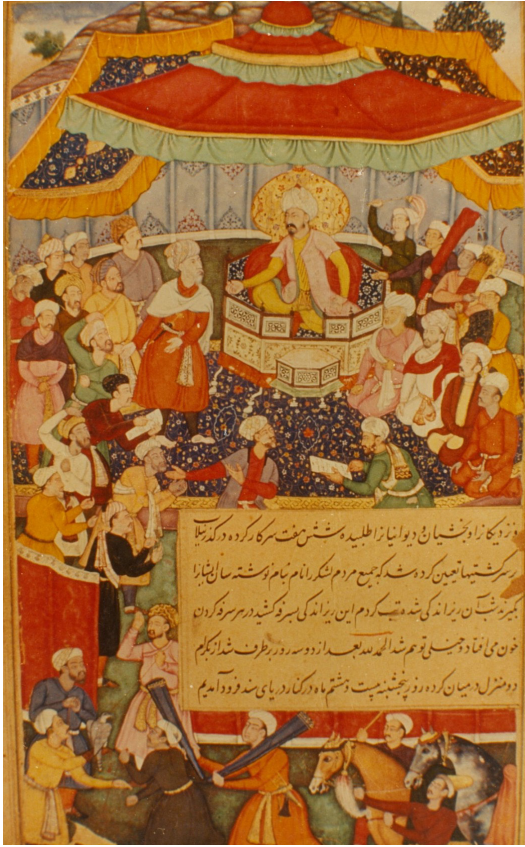 و نزدیکان را و بخشیان و دیوانیان را طلبیده شش هفت سرکار کرده در گذر نیلاب
بر سر کشتیها تعین کرده شد که جمیع مردم لشکر را نام بنام نوشته سان ایشان را
بگیرند شب آن ریزاندکی شد تب کردم این ریزاندکی بسرفه کشید در هر سرفه کردن
خون می افتاد و خیلی توهم شد الحمد لله بعد از دو سه روز برطرف شد از بکرام
دو منزل در میان کرده روز پنجشنبه بیست و هشتم ماه در کنار دریای سند فرود آمدیم